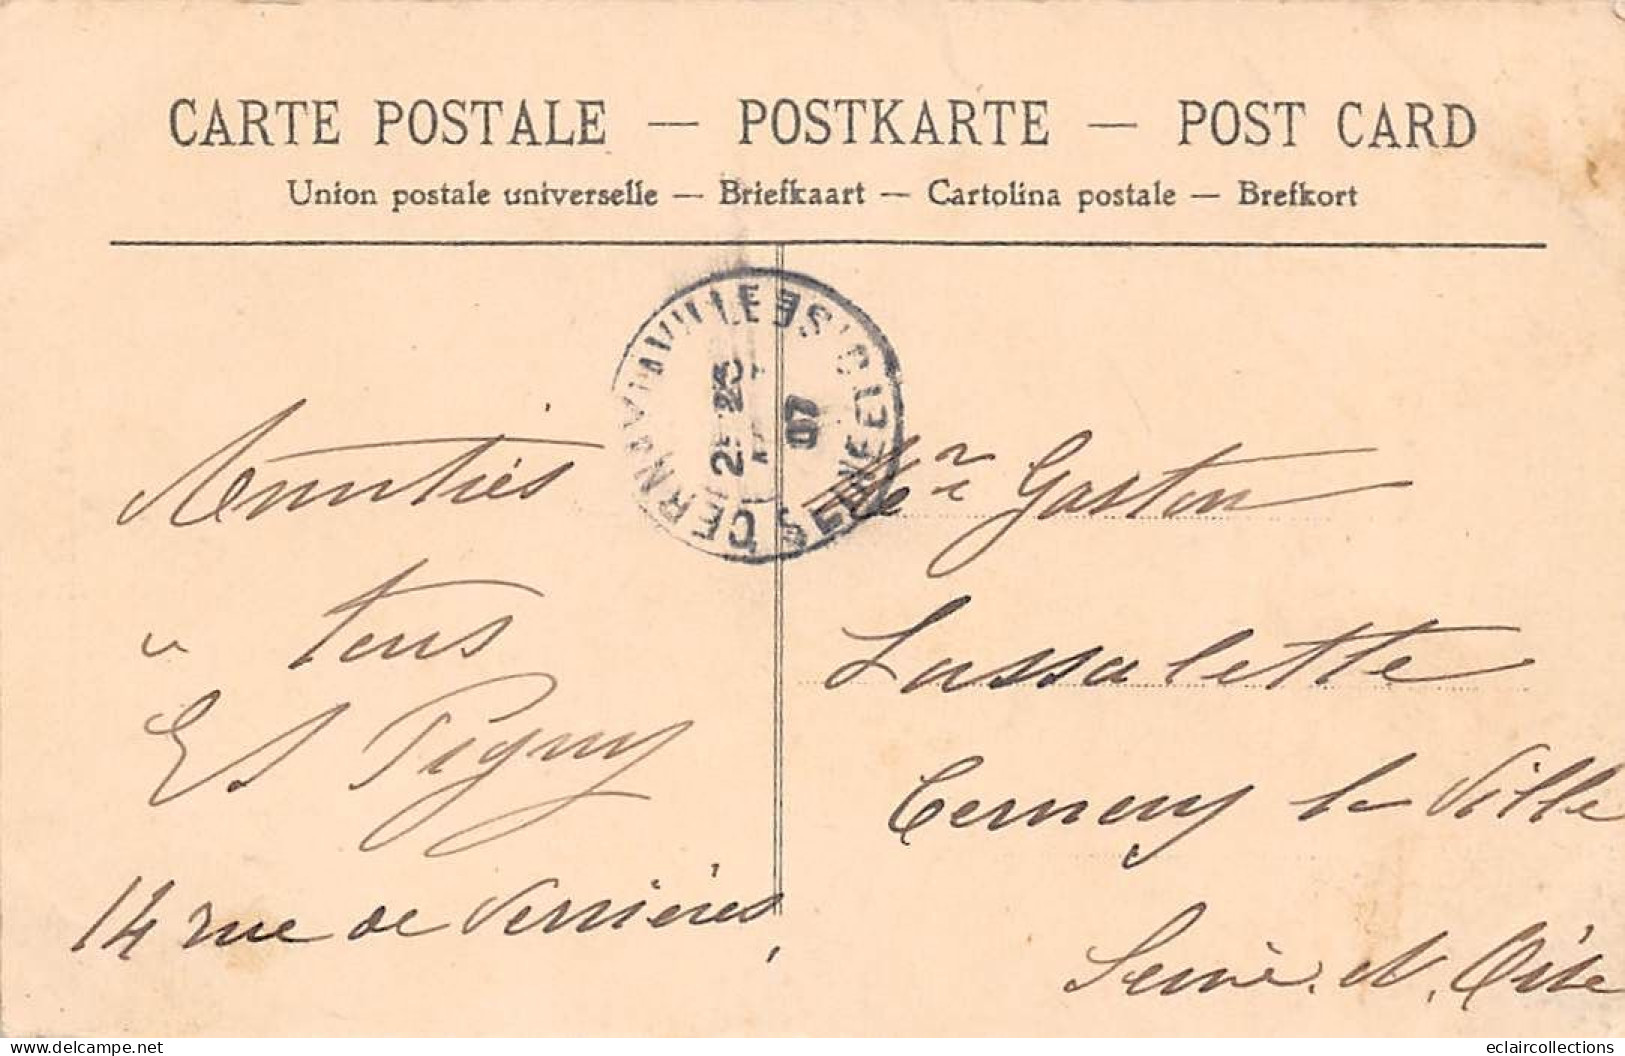 CARTE POSTALE — POSTKARTE — POST CARD
Union postale universelle — Briefkaart — Cartolina postale — Brefkort
CERNAY-LA-VILLE SEINE ET OISE
07
Amitiés
à tous
Pigny
14 rue de Verrières,
Mr Gaston
Lassalette
Cernay la Ville
Seine. et. Oise
delcampe.net
eclaircollections